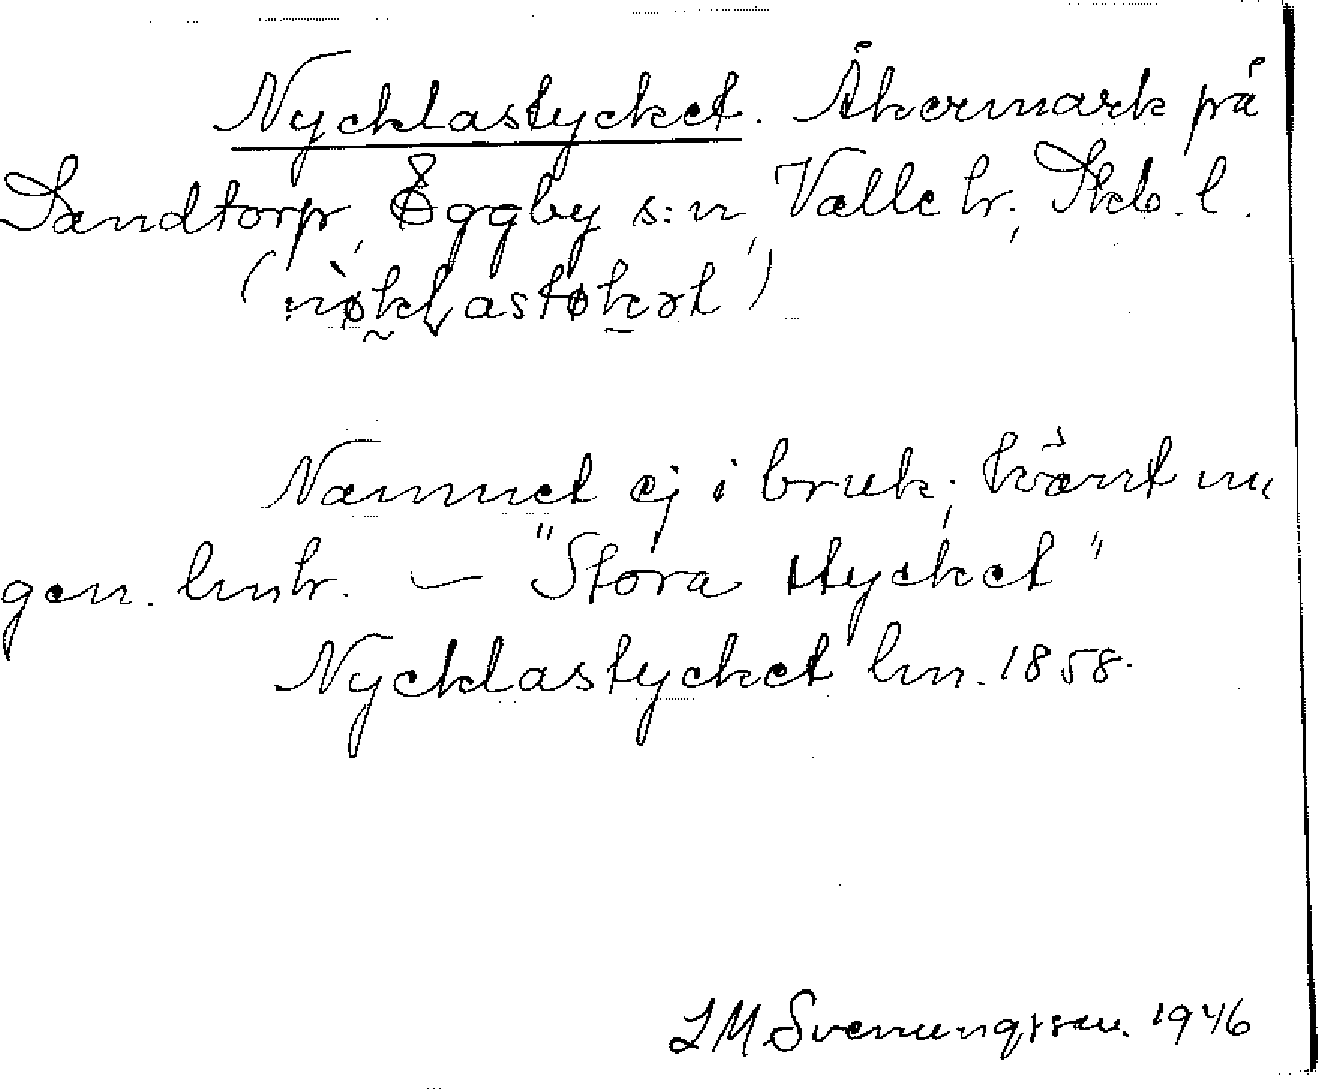 Nycklastycket. Åkermark på
Sandtorp, Eggby s:n, Valle hr, Skb. l.
(nøklastøkət)
Namnet ej i bruk; känt nu
gen. lmtr. — "Stora stycket"
Nycklastycket lm. 1858.
LM Svenungsson. 1946